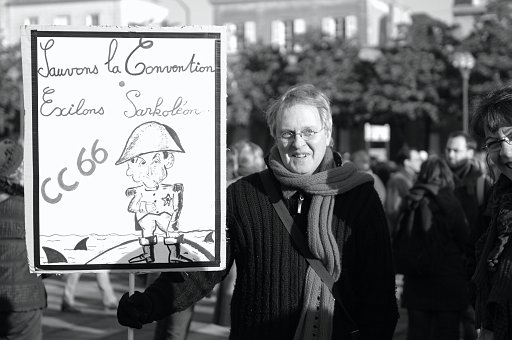 Sauvons la Convention
Exilons Sarkoléon..
CC 66